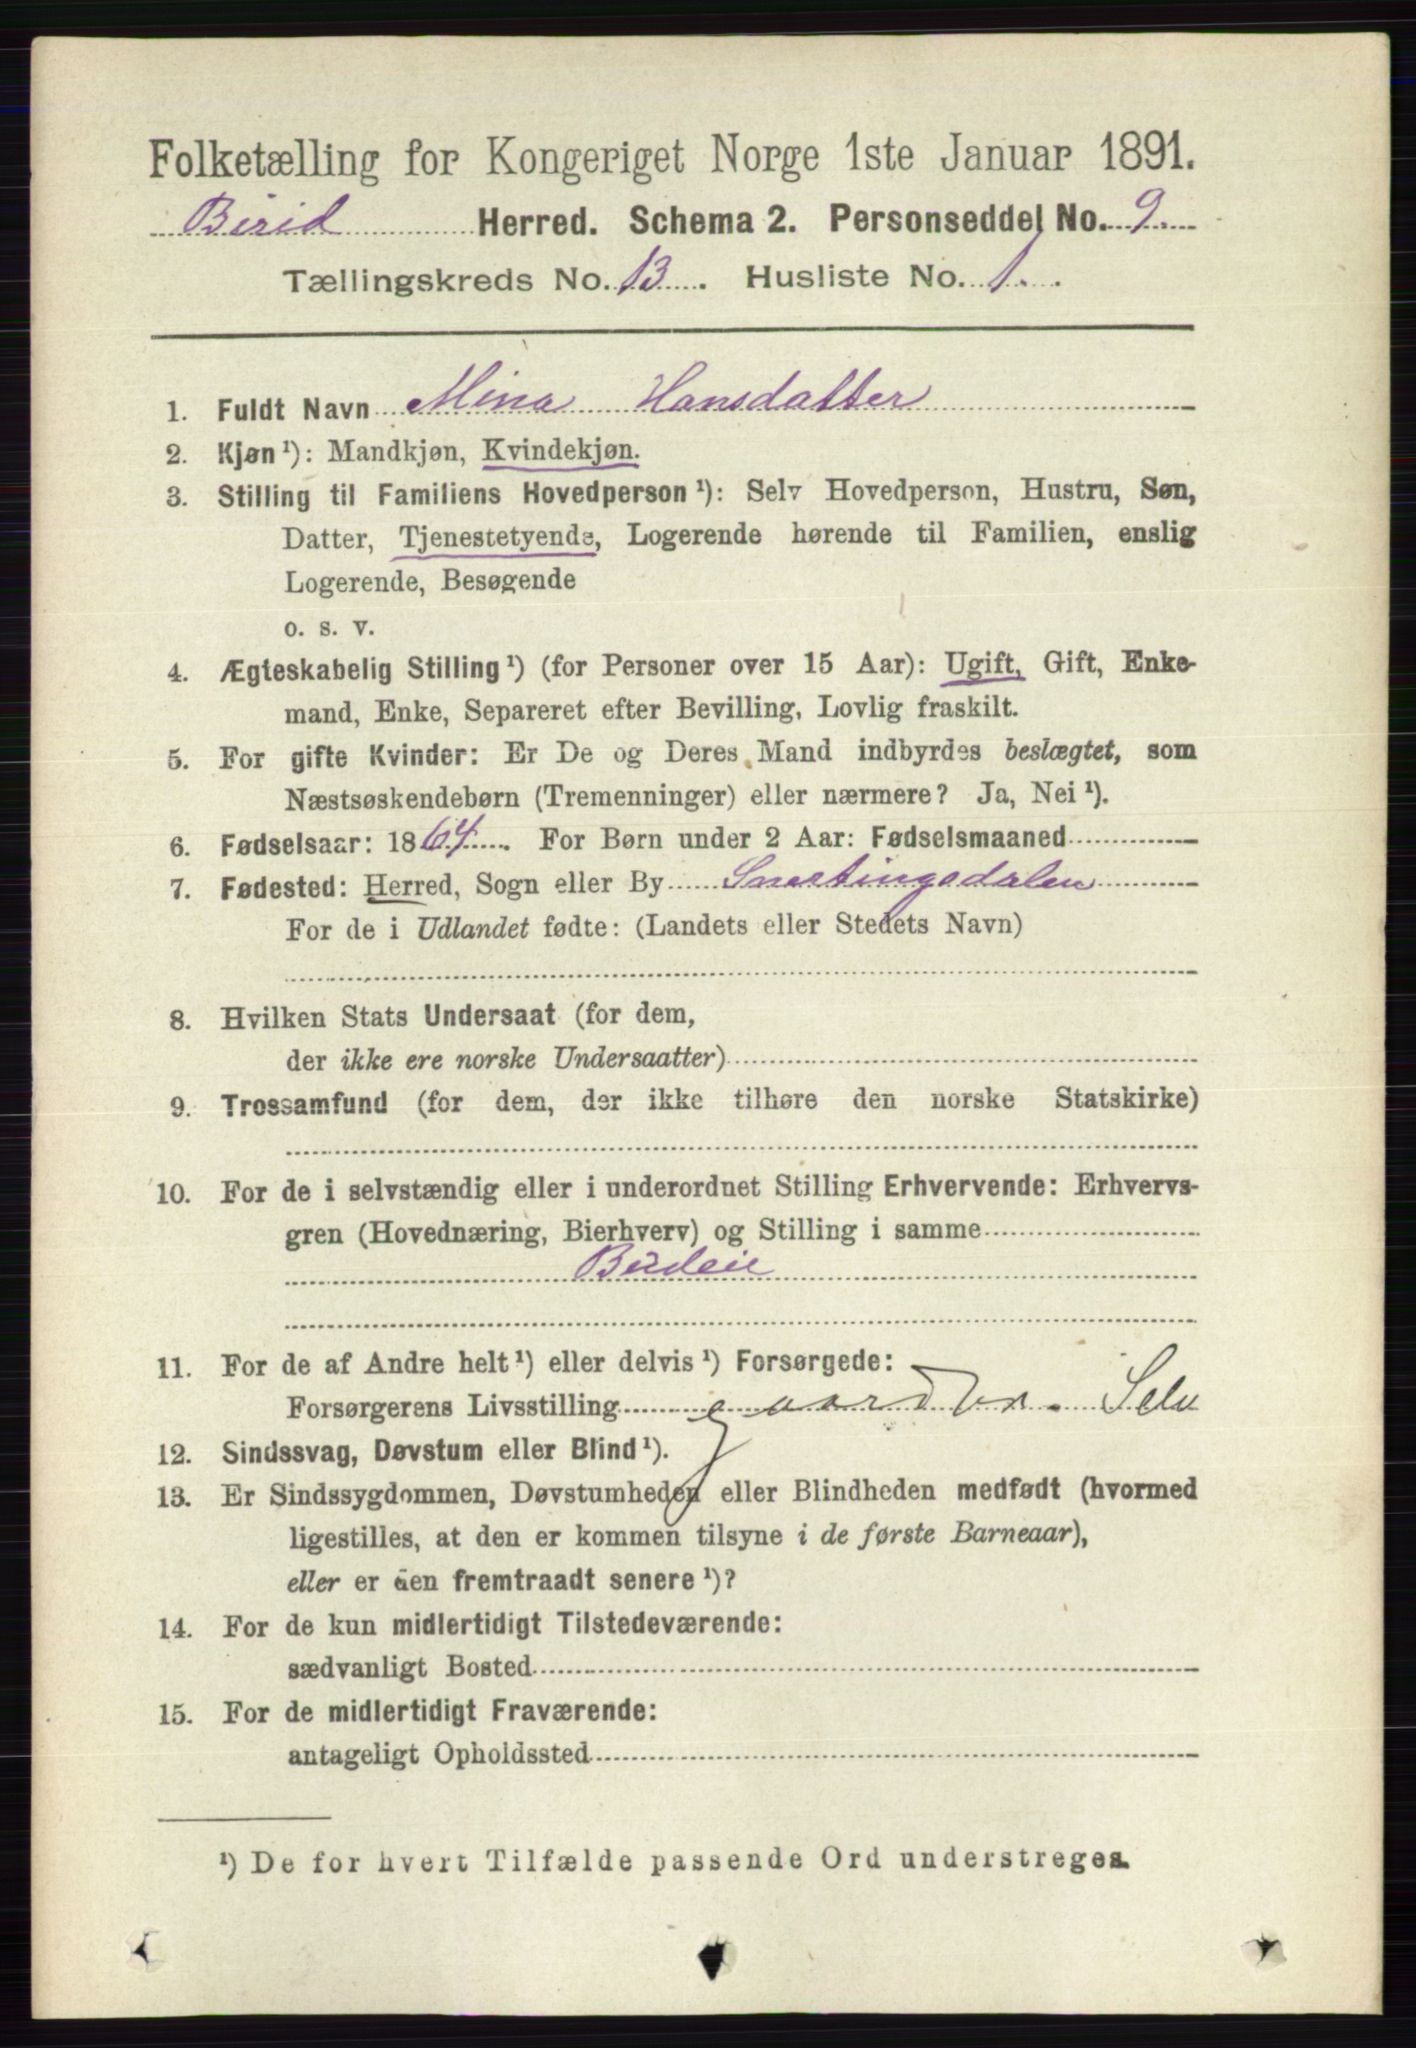 Folketælling for Kongeriget Norge 1ste Januar 1891.
Birid Herred. Schema 2. Personseddel No. 9.
Tællingskreds No. 13. Husliste No. 1.
1. Fuldt Navn Mina Hansdatter
2. Kjøn ¹): Mandkjøn, Kvindekjøn.
3. Stilling til Familiens Hovedperson ¹): Selv Hovedperson, Hustru, Søn,
Datter, Tjenestetyende, Logerende hørende til Familien, enslig
Logerende, Besøgende
o. s. v.
4. Ægteskabelig Stilling ¹) (for Personer over 15 Aar): Ugift, Gift, Enke-
mand, Enke, Separeret efter Bevilling, Lovlig fraskilt.
5. For gifte Kvinder: Er De og Deres Mand indbyrdes beslægtet, som
Næstsøskendebørn (Tremenninger) eller nærmere? Ja, Nei ¹).
6. Fødselsaar: 1864. For Børn under 2 Aar: Fødselsmaaned
7. Fødested: Herred, Sogn eller By Snertingsdalen
For de i Udlandet fødte: (Landets eller Stedets Navn)
8. Hvilken Stats Undersaat (for dem,
der ikke ere norske Undersaatter)
9. Trossamfund (for dem, der ikke tilhøre den norske Statskirke)
10. For de i selvstændig eller i underordnet Stilling Erhvervende: Erhvervs-
gren (Hovednæring, Bierhverv) og Stilling i samme
Budeie
11. For de af Andre helt ¹) eller delvis ¹) Forsørgede:
Forsørgerens Livsstilling gaardbr. Selv
12. Sindssvag, Døvstum eller Blind ¹).
13. Er Sindssygdommen, Døvstumheden eller Blindheden medfødt (hvormed
ligestilles, at den er kommen tilsyne i de første Barneaar),
eller er den fremtraadt senere ¹)?
14. For de kun midlertidigt Tilstedeværende:
sædvanligt Bosted
15. For de midlertidigt Fraværende:
antageligt Opholdssted
¹) De for hvert Tilfælde passende Ord understreges.